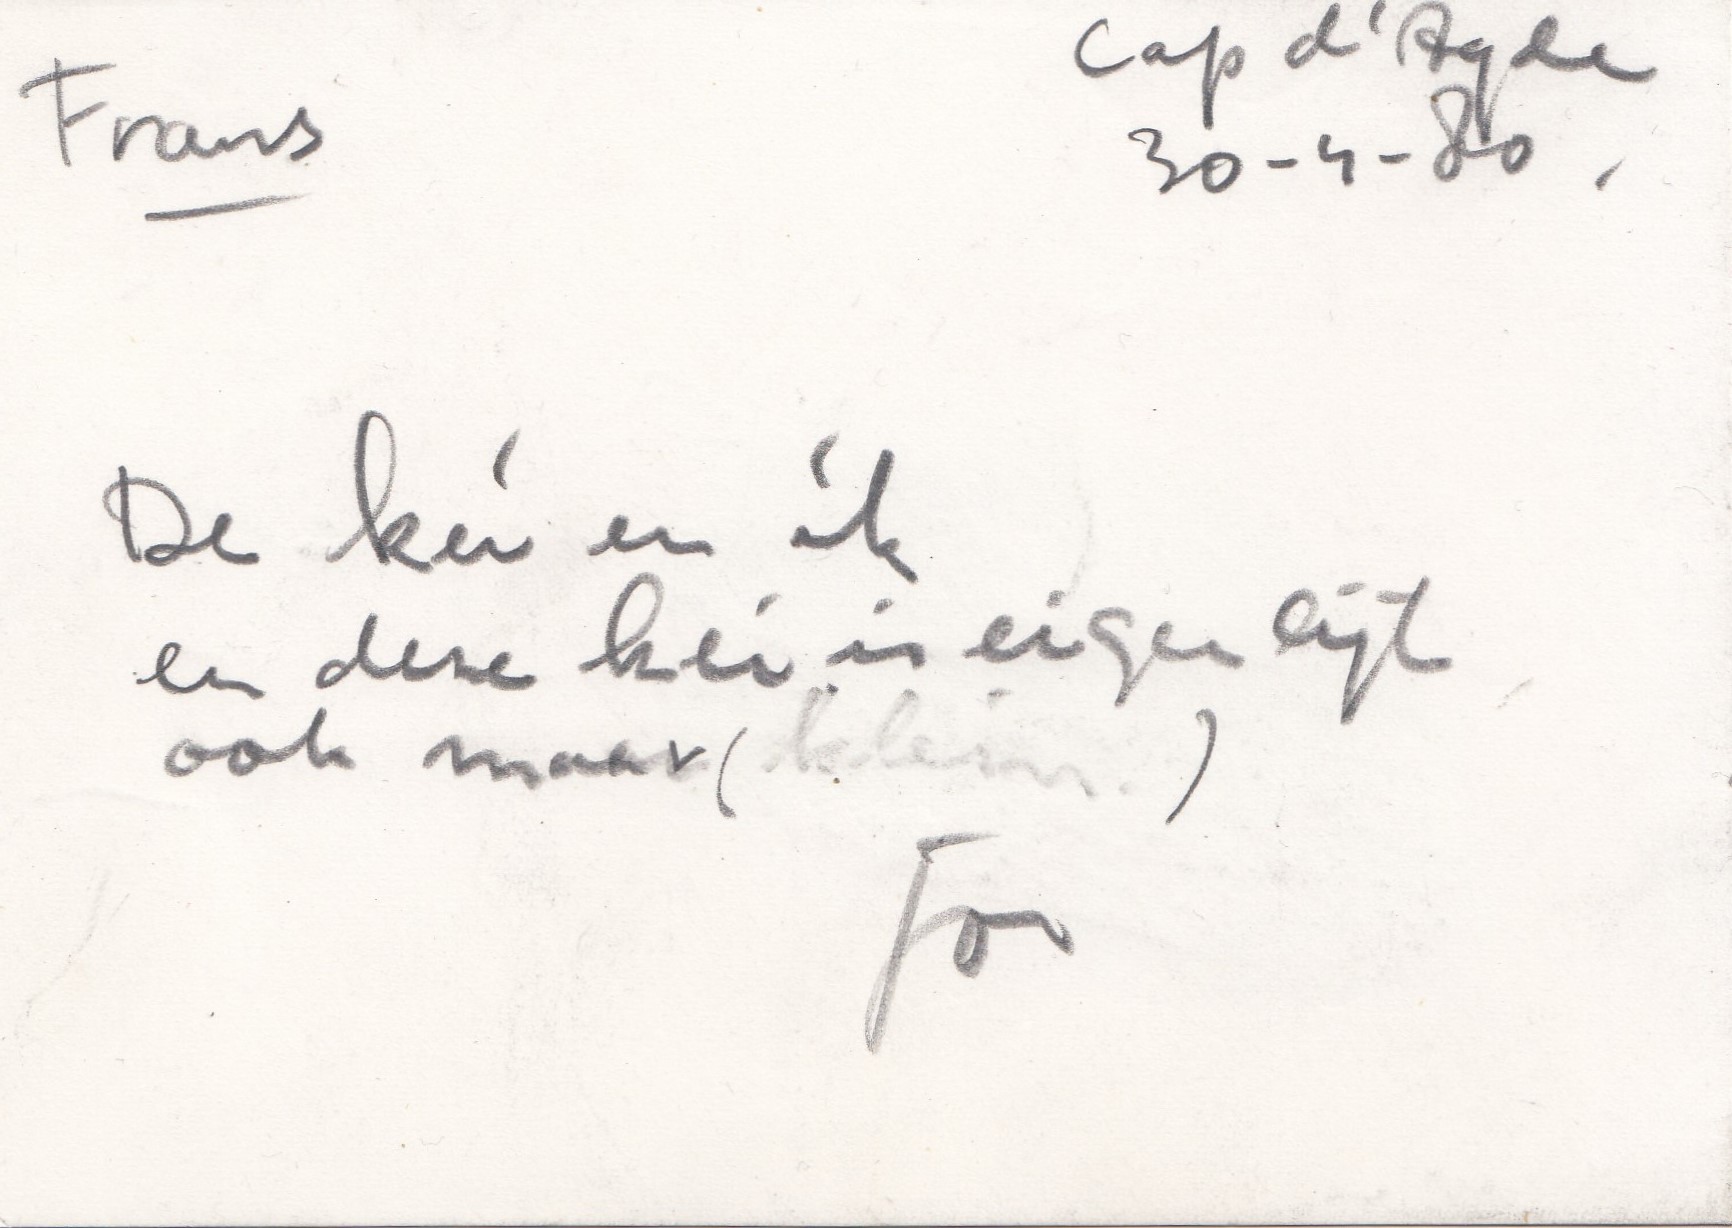 Frans
Cap d'Agde
30-4-80,
De kei en ík
en deze kei is eigenlijk
ook maar (klein.)